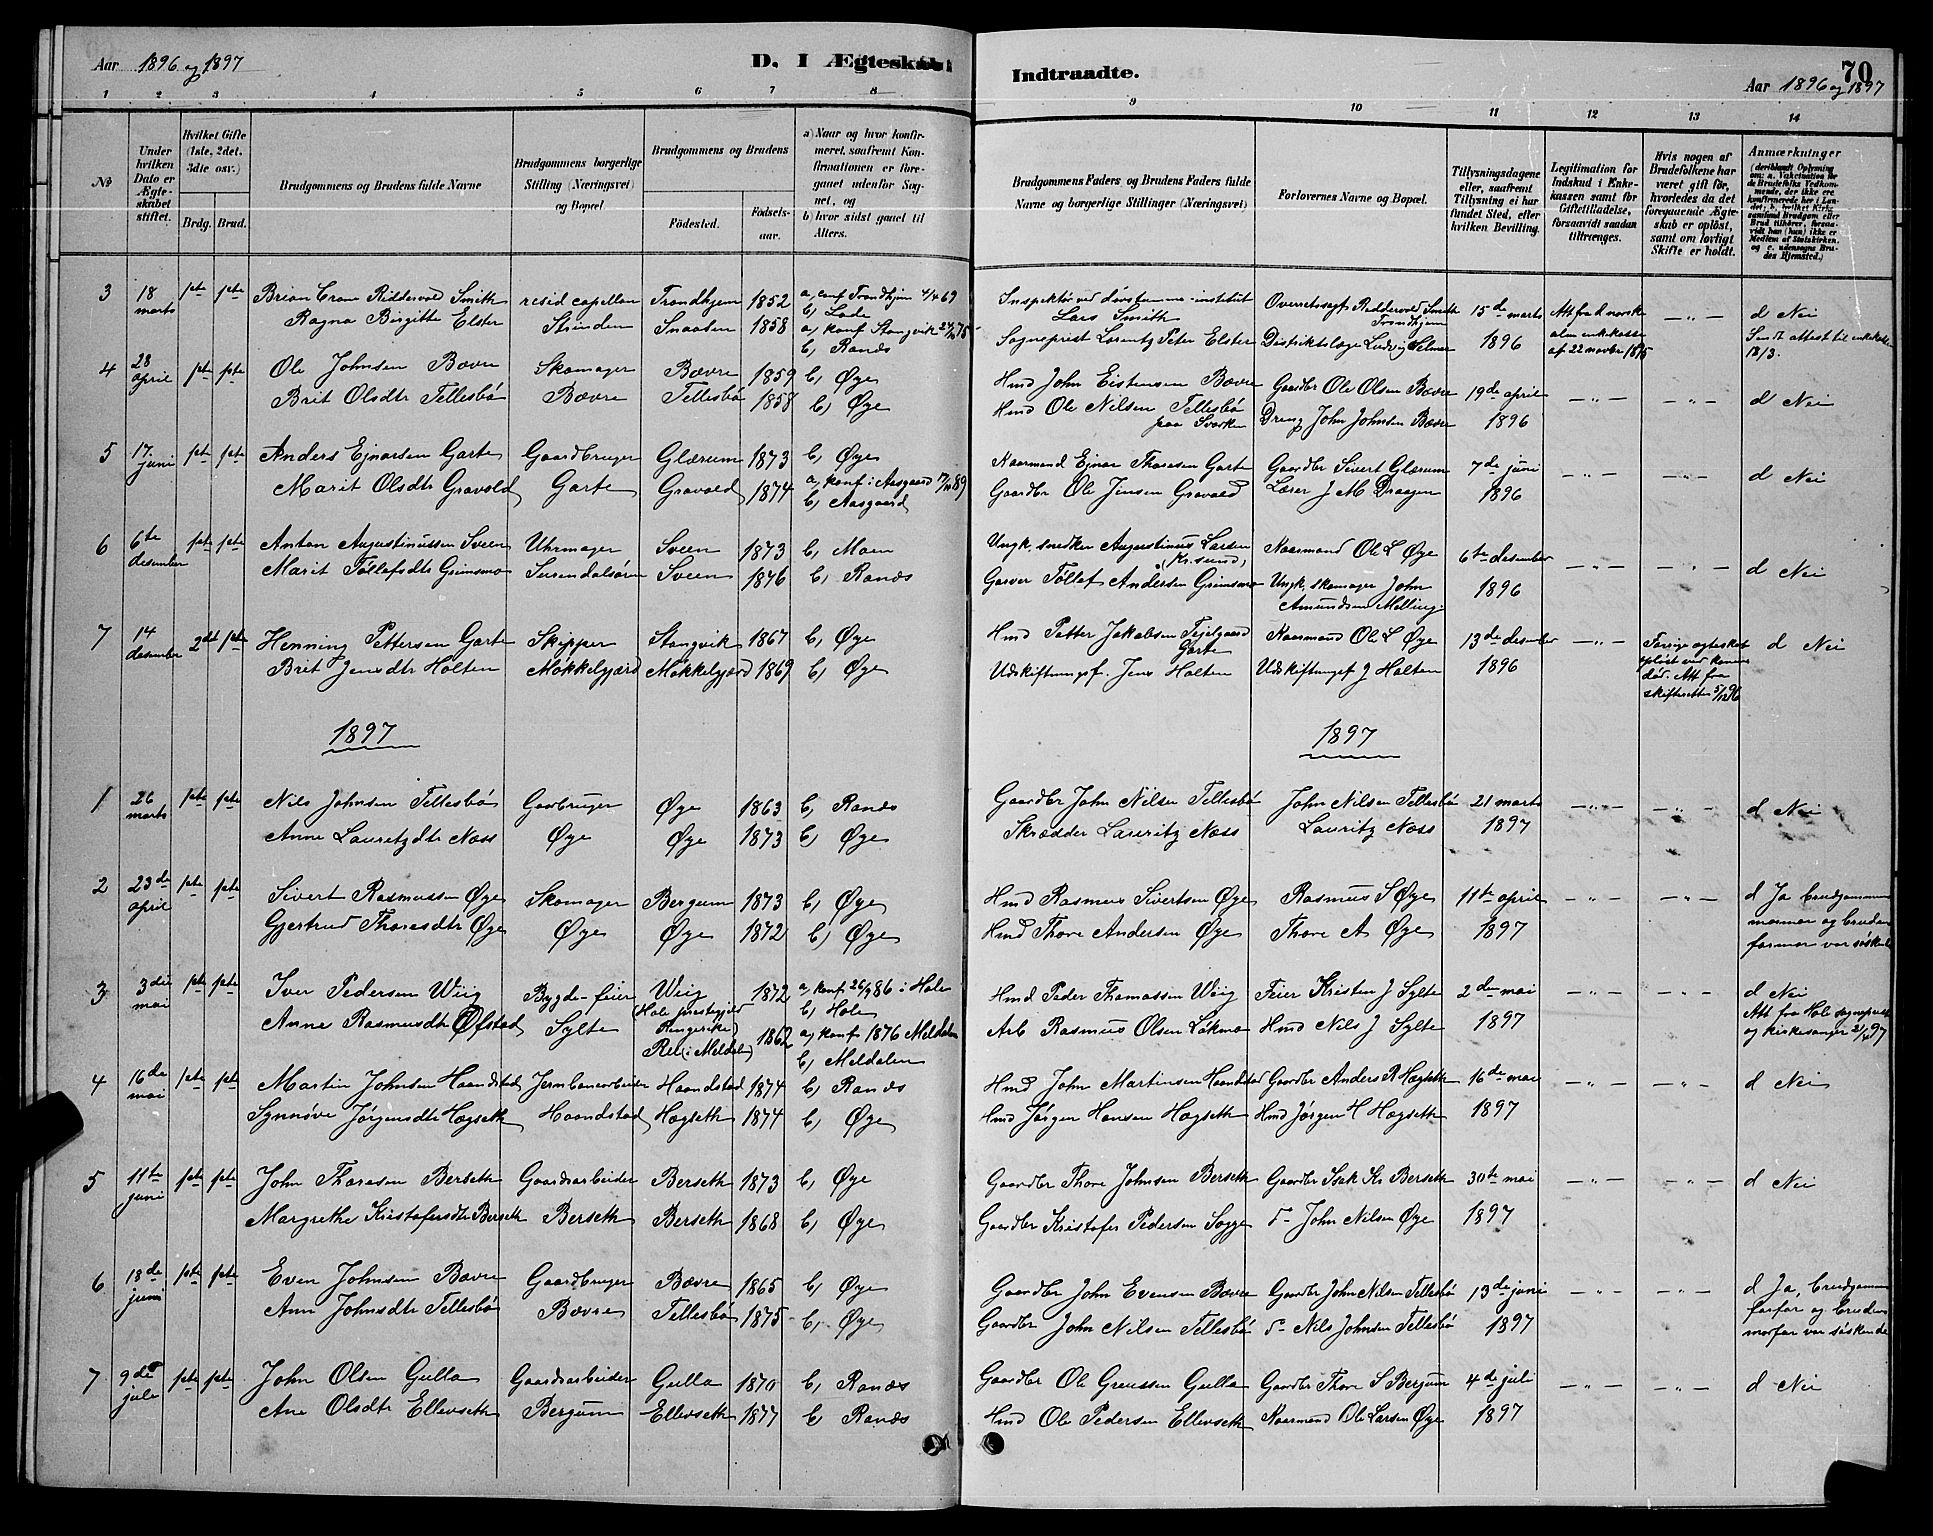 Aar 1896 og 1897
D. I Ægteskab
Indtraadte.
70
Aar 1896 og 1897
1 2 3 4 5 6 7 8
9 10 11 12 13 14
No
Under hvilken Dato er Ægteskabet stiftet.
Hvilket Gifte (1ste, 2det, 3die osv.)
Brdg. Brud.
Brudgommens og Brudens fulde Navne
Brudgommens borgerlige Stilling (Næringsvei) og Bopæl.
Brudgommens og Brudens
Födested.
Födselsaar.
a) Naar og hvor konfirmeret, saafremt Konfirmationen er foregaaet udenfor Sognet, og
b) hvor sidst gaaet til Alters.
Brudgommens Faders og Brudens Faders fulde Navne og borgerlige Stillinger (Næringsvei)
Forlovernes Navne og Bopæl.
Tillysningsdagene eller, saafremt Tillysning ei har fundet Sted, efter hvilken Bevilling.
Legitimation for Indskud i Enkekassen samt for Giftetilladelse, forsaavidt saadan tiltrænges.
Hvis nogen af Brudefolkene har været gift för, hvorledes da det foregaaende Ægteskab er oplöst, samt om lovligt Skifte er holdt.
Anmærkninger
3 18 marts 1ste 1ste Brian Crone Riddervold Smith resid capellan Trondhjem 1852 a, conf Trondhjem 4/4 69 b, Lade
Ragna Birgitte Elster Strinden Snaasen 1858 a, konf Stangvik b, Ranæs
Inspektør ved døvstumme-institut Lars Smith Overretssagf. Riddervold Smith Trondhjem 15de marts Att fra d norske enkekasse d Nei
Sogneprest Lorentz Peter Elster Distriktslæge Ludvig Selmer 1896 af 22 novbr 1875 Sendt attest til enkekassen
4 28 april 1ste 1ste Ole Johnsen Bævre Skomager Bævre 1859 b, Øye
Brit Olsdtr Tellesbø Bævre Tellesbø 1858 b, Øye
Hmd John Eistensen Bævre Gaardbr Ole Olsen Bævre 19de april d Nei
Hmd Ole Nilsen Tellesbø paa Svorken Dreng John Johnsen Bævre 1896
5 17. juni 1ste 1ste Anders Ejnarsen Garte Gaardbruger Glærum 1873 b, Øye
Marit Olsdtr Gravold Garte Gravold 1874 a, konf i Aasgaard b, Aasgaard
Kaarmand Ejnar Thoresen Garte Gaardbr Sivert Glærum 7de juni d Nei
Gaardbr Ole Jensen Gravold Lærer J M Dragen 1896
6 6te desember 1ste 1ste Anton Augustinussen Sveen Uhrmager Sveen 1873 b, Moen
Marit Tøllefsdtr Grimsmo Surendalsøren Sveen 1876 b, Ranæs
Ungk. snedker Augustinus Larsen (Kr.sund) Kaarmand Ole L Øye 6te desember d Nei
Garver Tøllef Andersen Grimsmo Ungk. skomager John Amundsen Melling 1896
7 14 desember 2det 1ste Henning Pettersen Garte Skipper Stangvik 1867 b, Øye
Brit Jensdtr Holten Møkkelgjærd Møkkelgjærd 1869 b, Øye
Hmd Petter Jakobsen Garte Kaarmand Ole L Øye 13de desember Forrige ægteskab opløst ved konens død. Att fra skifteretten 5/12 96 d Nei
Udskiftningsf. Jens Holten Udskiftningsf J Holten 1896
1897
1897
1 26 marts 1ste 1ste Nils Johnsen Tellesbø Gaarbruger Øye 1863 b, Ranæs
Anne Lauritzdtr Næss Øye Øye 1873 b, Øye
Gaardbr John Nilsen Tellesbø John Nilsen Tellesbø 21 marts d Nei
Skrædder Lauritz Næss Lauritz Næss 1897
2 23de april 1ste 1ste Sivert Rasmussen Øye Skomager Bergum 1873 b, Øye
Gjertrud Thoresdtr Øye Øye Øye 1872 b, Øye
Hmd Rasmus Sivertsen Øye Rasmus S Øye 11te april d Ja brudgommens
Hmd Thore Andersen Øye Thore A Øye 1897 mormor og brudens farmor var søskende
3 3die mai 1ste 1ste Iver Pedersen Wiig Bygde-feier Wiig (Hole prestegjeld Ringerike) 1872 a, konf 26/9 86 i Hole b, Hole
Anne Rasmusdtr Øfstad Sylte Rel (i Meldalen) 1862 a, konf 1876 Meldalen b, Meldalen
Hmd Peder Thomassen Wiig Feier Kristen J Sylte 2den mai d Nei
Arb Rasmus Olsen Løkmo Hmd Nils J Sylte 1897 Att fra Hole sogneprest og kirkesanger 21/4 97
4 16de mai 1ste 1ste Martin Johnsen Haandstad Jernbanearbeider Haandstad 1874 b, Ranæs
Synnøve Jørgensdtr Hægseth Haandstad Hægseth 1874 b, Øye
Hmd John Martinsen Haandstad Gaardbr Anders R Hægseth 16de mai d Nei
Hmd Jørgen Hansen Hægseth Hmd Jørgen H Hægseth 1897
5 11te juni 1ste 1ste John Thoresen Berseth Gaardsarbeider Berseth 1873 b, Øye
Margrethe Kristofersdtr Berseth Berseth Berseth 1868 b, Øye
Gaardbr Thore Johnsen Berseth Gaardbr Isak Kr Berseth 30te mai d Nei
Gaardbr Kristofer Pedersen Sogge do John Nilsen Øye 1897
6 18de juni 1ste 1ste Even Johnsen Bævre Gaardbruger Bævre 1865 b, Øye
Ane Johnsdtr Tellesbø Bævre Tellesbø 1875 b, Øye
Gaardbr John Evensen Bævre Gaardbr John Nilsen Tellesbø 13de juni d Ja, brudgommens
Gaardbr John Nilsen Tellesbø do Nils Johnsen Tellesbø 1897 farfar og brudens morfar var søskende
7 9de juli 1ste 1ste John Olsen Gulla Gaardsarbeider Gulla 1870 b, Ranæs
Ane Olsdtr Ellevseth Bergum Ellevseth 1877 b, Ranæs
Gaardbr Ole Gravssen Gulla Gaardbr Thore S Bergum 4de juli d Nei
Hmd Ole Pedersen Ellevseth Kaarmand Ole Larsen Øye 1897